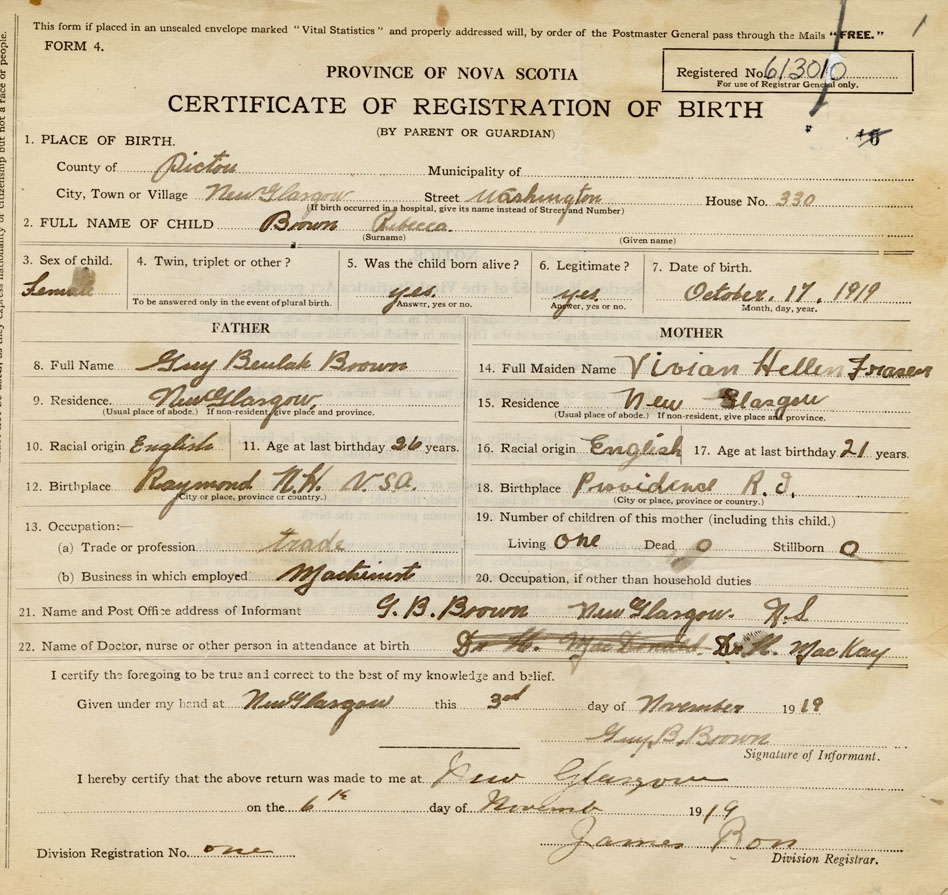 This form if placed in an unsealed envelope marked "Vital Statistics" and properly addressed will, by order of the Postmaster General pass through the Mails "FREE."
FORM 4.
PROVINCE OF NOVA SCOTIA
Registered No. 613010
For use of Registrar General only.
CERTIFICATE OF REGISTRATION OF BIRTH
(BY PARENT OR GUARDIAN)
1. PLACE OF BIRTH.
County of Pictou Municipality of
City, Town or Village New Glasgow Street Washington House No. 330
(If birth occurred in a hospital, give its name instead of Street and Number)
2. FULL NAME OF CHILD Brown Rebecca.
(Surname) (Given name)
3. Sex of child. Female
4. Twin, triplet or other?
To be answered only in the event of plural birth.
5. Was the child born alive? yes.
Answer, yes or no.
6. Legitimate? yes.
Answer, yes or no.
7. Date of birth. October. 17. 1919
Month, day, year.
FATHER
8. Full Name Guy Beulah Brown
9. Residence. New Glasgow
(Usual place of abode.) If non-resident, give place and province.
10. Racial origin English 11. Age at last birthday 26 years.
12. Birthplace Raymond N.H. U.S.A.
(City or place, province or country.)
13. Occupation:—
(a) Trade or profession trade
(b) Business in which employed Machinist
MOTHER
14. Full Maiden Name Vivian Hellen Fraser
15. Residence New Glasgow
(Usual place of abode.) If non-resident, give place and province.
16. Racial origin English 17. Age at last birthday 21 years.
18. Birthplace Providence R. I.
(City or place, province or country.)
19. Number of children of this mother (including this child.)
Living one Dead 0 Stillborn 0
20. Occupation, if other than household duties
21. Name and Post Office address of Informant G. B. Brown New Glasgow. N.S
22. Name of Doctor, nurse or other person in attendance at birth Dr H. MacDonald. Dr H. MacKay
I certify the foregoing to be true and correct to the best of my knowledge and belief.
Given under my hand at New Glasgow this 3rd day of November 1919
Guy B. Brown
Signature of Informant.
I hereby certify that the above return was made to me at New Glasgow
on the 6th day of Novemb 1919
James
Division Registration No. one
Division Registrar.